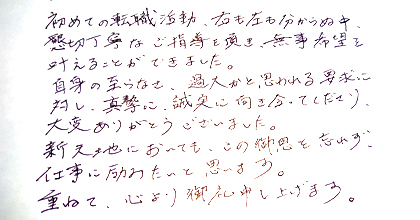 初めての転職活動、右も左も分からぬ中、
懇切丁寧なご指導を頂き、無事希望を
叶えることができました。
自身の至らなさ、過大かと思われる要求に
対し、真摯に、誠実に向き合ってくださり、
大変ありがとうございました。
新天地においても、この御恩を忘れず、
仕事に励みたいと思います。
重ねて、心より御礼申し上げます。